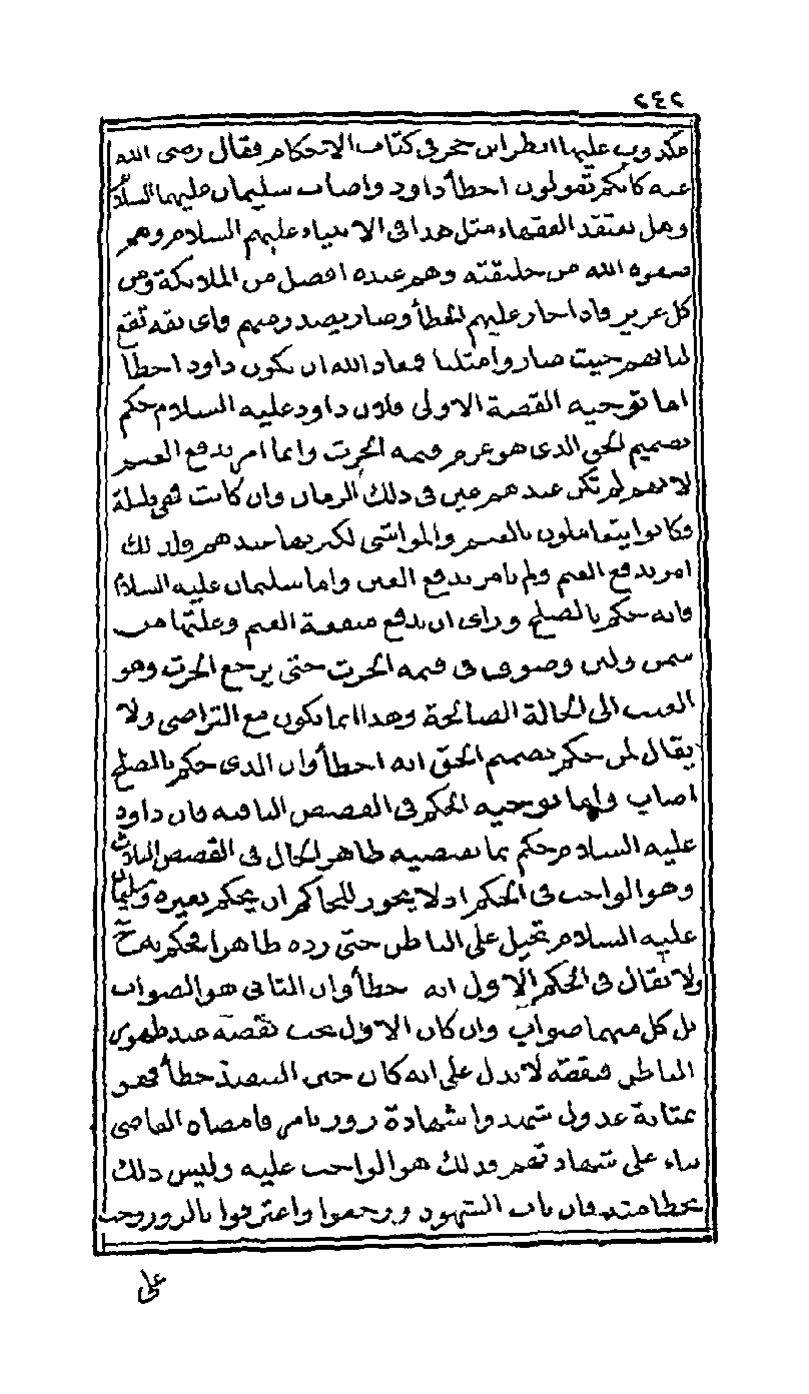 ٢٤٢
مكذوب عليها انظر ابن حجر في كتاب الاحكام فقال رضي الله
عنه كانكم تقولون اخطأ داود واصاب سليمان عليهما السلام
وهل يعتقد الفقهاء مثل هذا في الانبياء عليهم السلام وهم
صفوة الله من خليقته وهم عنده افضل من الملائكة ومن
كل عزيز فاذا جاز عليهم الخطأ وصار يصدر منهم فاي ثقة تقع
لنا بهم حيث صاروا مثلنا فمعاذ الله ان يكون داود اخطأ
اما توجيه القصة الاولى فلان داود عليه السلام حكم
بصميم الحق الذي هو غرم قيمة الحرث وانما امر بدفع الغنم
لانهم لم تكن عندهم عين في ذلك الزمان وان كانت فهي قليلة
وكانوا يتعاملون بالغنم والمواشي لكثرتها عندهم ولذلك
امر بدفع الغنم ولم يامر بدفع العين واما سليمان عليه السلام
فانه حكم بالصلح وراى ان يدفع منفعة الغنم وغلتها من
سمن ولبن وصوف في قيمة الحرث حتى يرجع الحرث وهو
العنب الى الحالة الصالحة وهذا انما يكون مع التراضي ولا
يقال لمن حكم بصميم الحق انه اخطأ وان الذي حكم بالصلح
اصاب واما توجيه الحكم في القصص الباقية فان داود
عليه السلام حكم بما يقتضيه ظاهر الحال في القصص الثلاث
وهو الواجب في الحكم اذ لا يجوز للحاكم ان يحكم بغيره وسليمان
عليه السلام تحيل على الباطن حتى رده ظاهرا فحكم به ح
ولا يقال في الحكم الاول انه خطأ وان الثاني هو الصواب
بل كل منهما صواب وان كان الاول يجب نقضه عند ظهور
الباطن فنقضه لا يدل على انه كان حين التنفيذ خطأ فهو
بمثابة عدول شهدوا شهادة زور بامر فامضاه القاضي
بناء على شهادتهم فذلك هو الواجب عليه وليس ذلك
بخطا منه فان تاب الشهود ورجعوا واعترفوا بالزور وجب
على